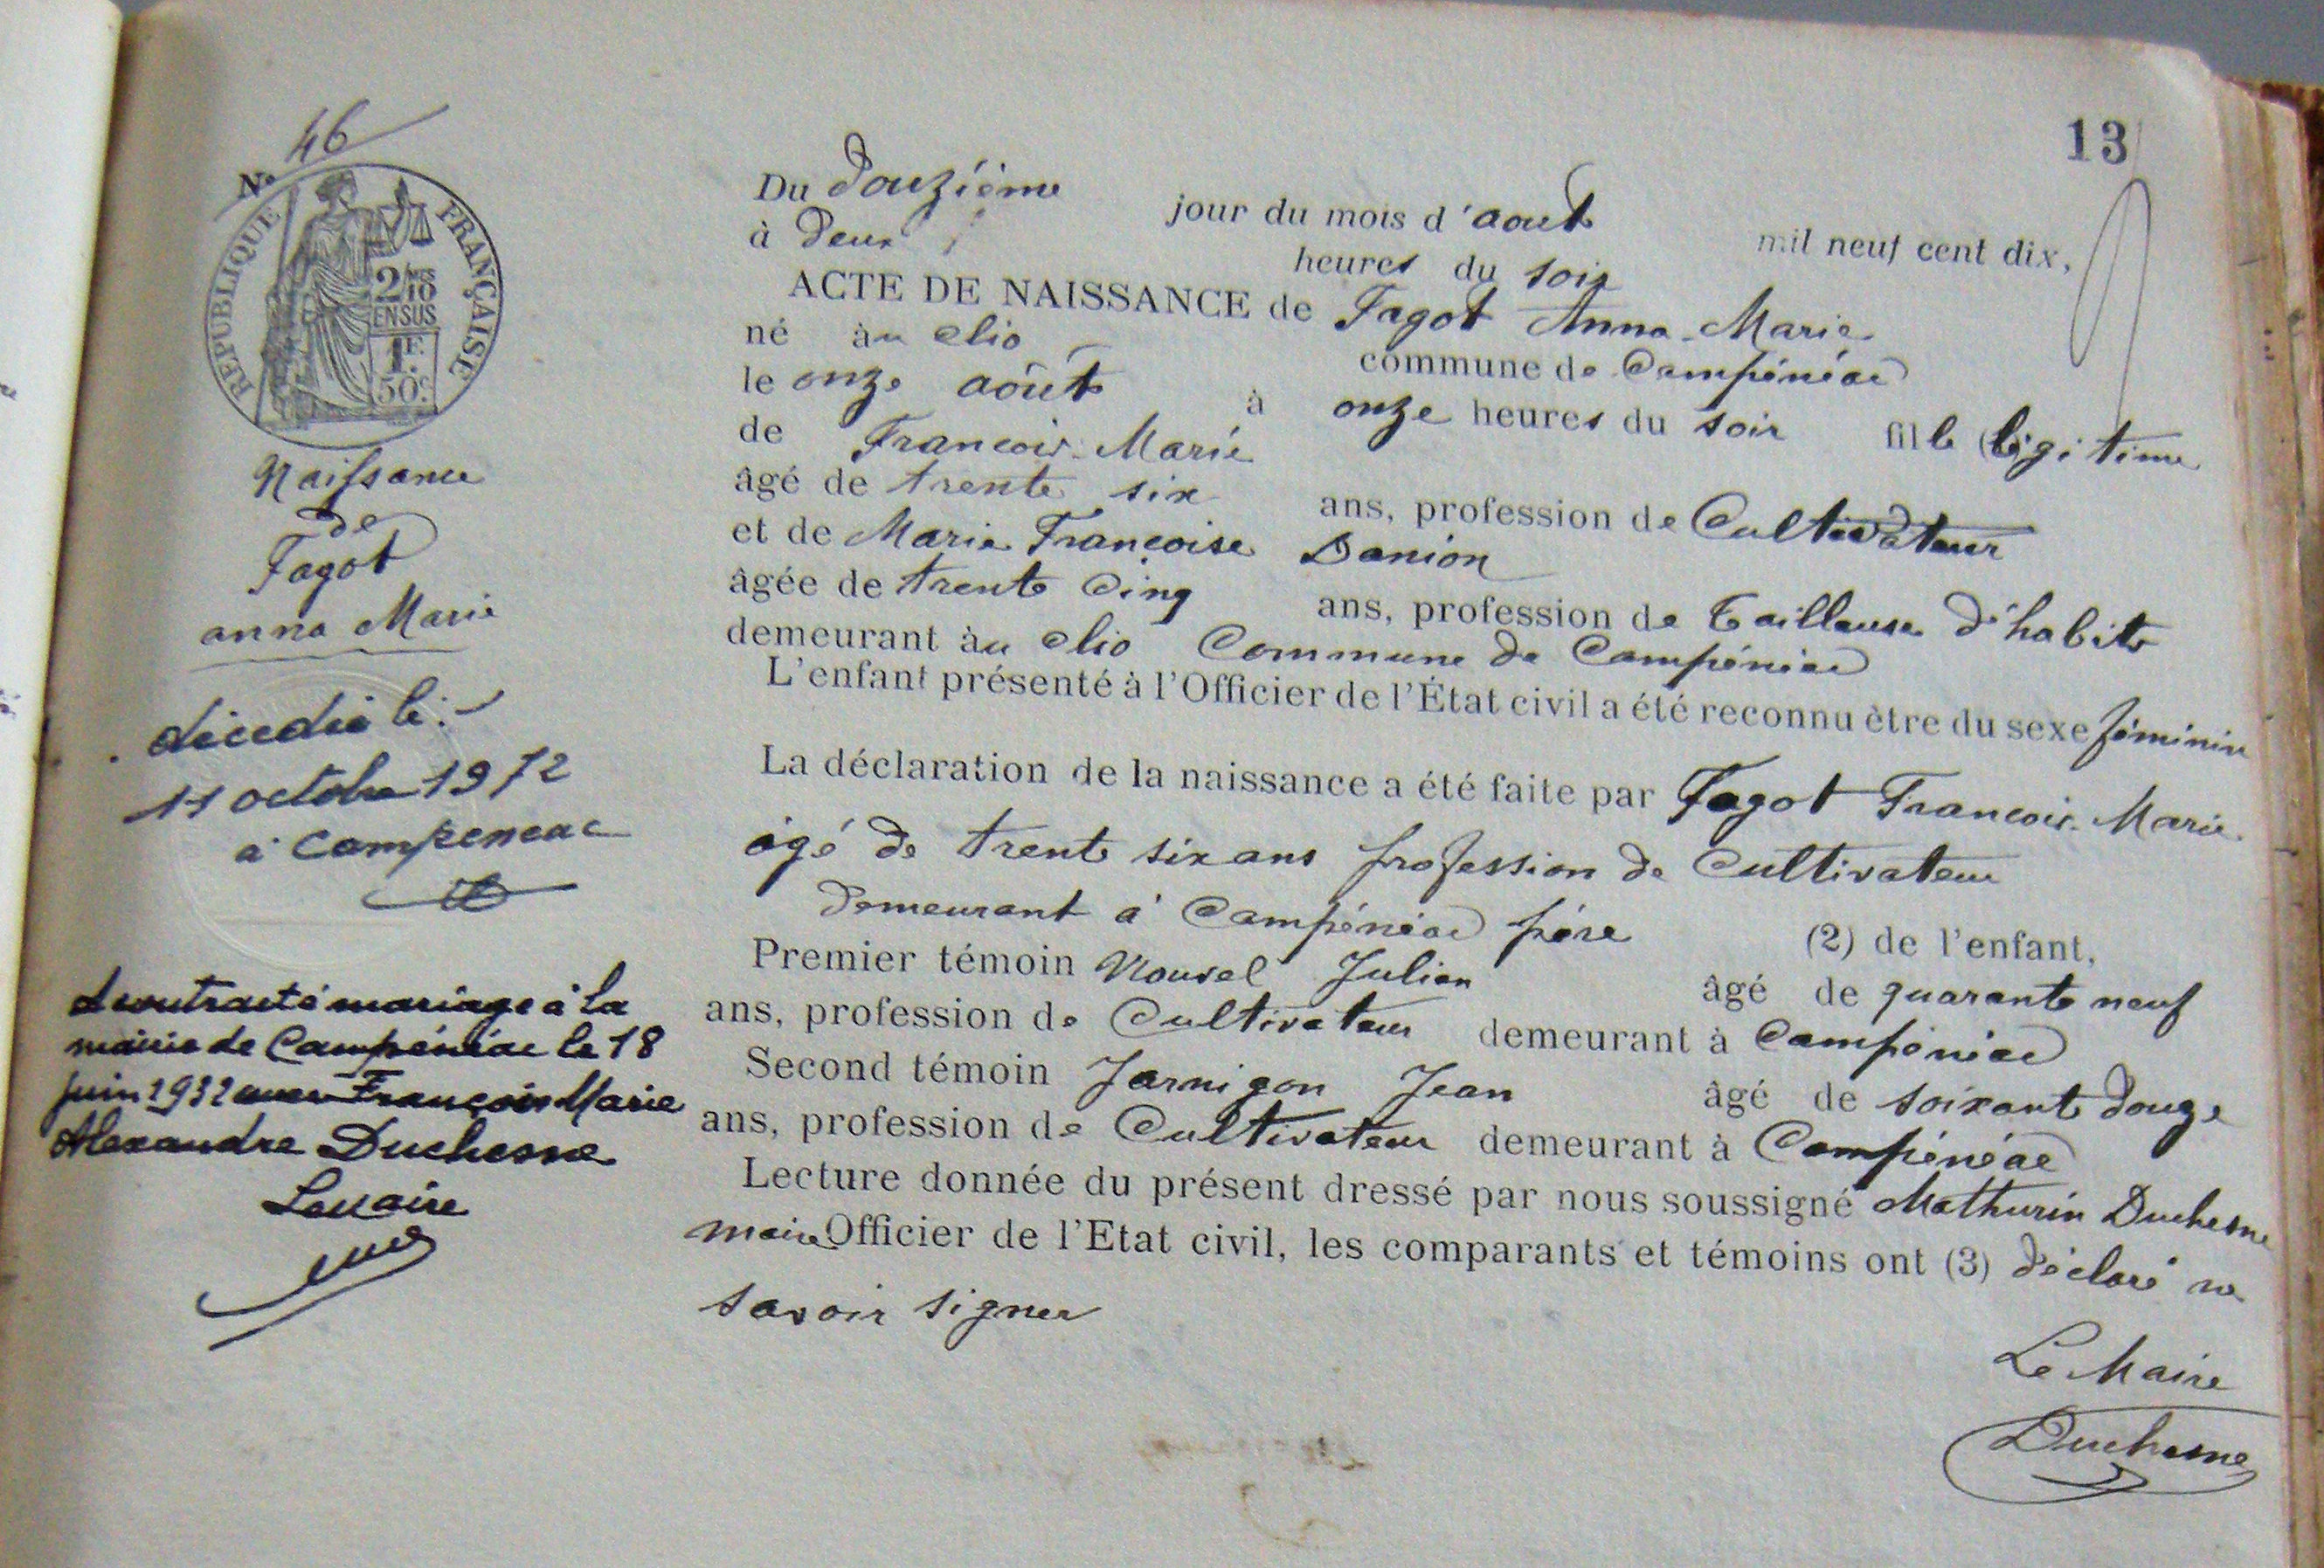 13
46
No
REPUBLIQUE FRANÇAISE
2/10
EN SUS
1F.
50c.
Naissance
de
Fagot
anna Marie
décédée le :
11 octobre 1972
à Campeneac
A contracté mariage à la
mairie de Campénéac le 18
Juin 1932 avec François Marie
Alexandre Duchesne
Le Maire
Du Douzième jour du mois d'aout mil neuf cent dix,
à Deux heures du soir
ACTE DE NAISSANCE de Fagot Anna Marie
né au clio commune de Campénéac
le onze août à onze heures du soir fille légitime
de Francois Marie
âgé de trente six ans, profession de Cultivateur
et de Marie Françoise Danion
âgée de trente Cinq ans, profession de Tailleuse d'habits
demeurant au clio Commune de Campénéac
L'enfant présenté à l'Officier de l'État civil a été reconnu être du sexe féminin
La déclaration de la naissance a été faite par Fagot Francois Marie
âgé de trente six ans profession de Cultivateur
demeurant à Campénéac père (2) de l'enfant,
Premier témoin Nouvel Julien âgé de quarante neuf
ans, profession de Cultivateur demeurant à Campénéac
Second témoin Jarnigon Jean âgé de soixante Douze
ans, profession de Cultivateur demeurant à Campénéac
Lecture donnée du présent dressé par nous soussigné Mathurin Duchesne
maire Officier de l'Etat civil, les comparants et témoins ont (3) déclaré ne
savoir signer
Le Maire
Duchesne